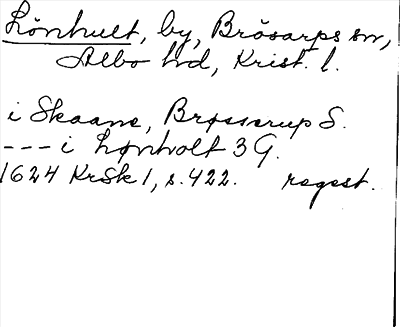 Lönhult, by, Brösarps sn,
Albo hd, Krist. l.
i Skaane, Brøsserup S.
--- i Lønholt 3 G.
1624 KrSk 1, s. 422. regest.